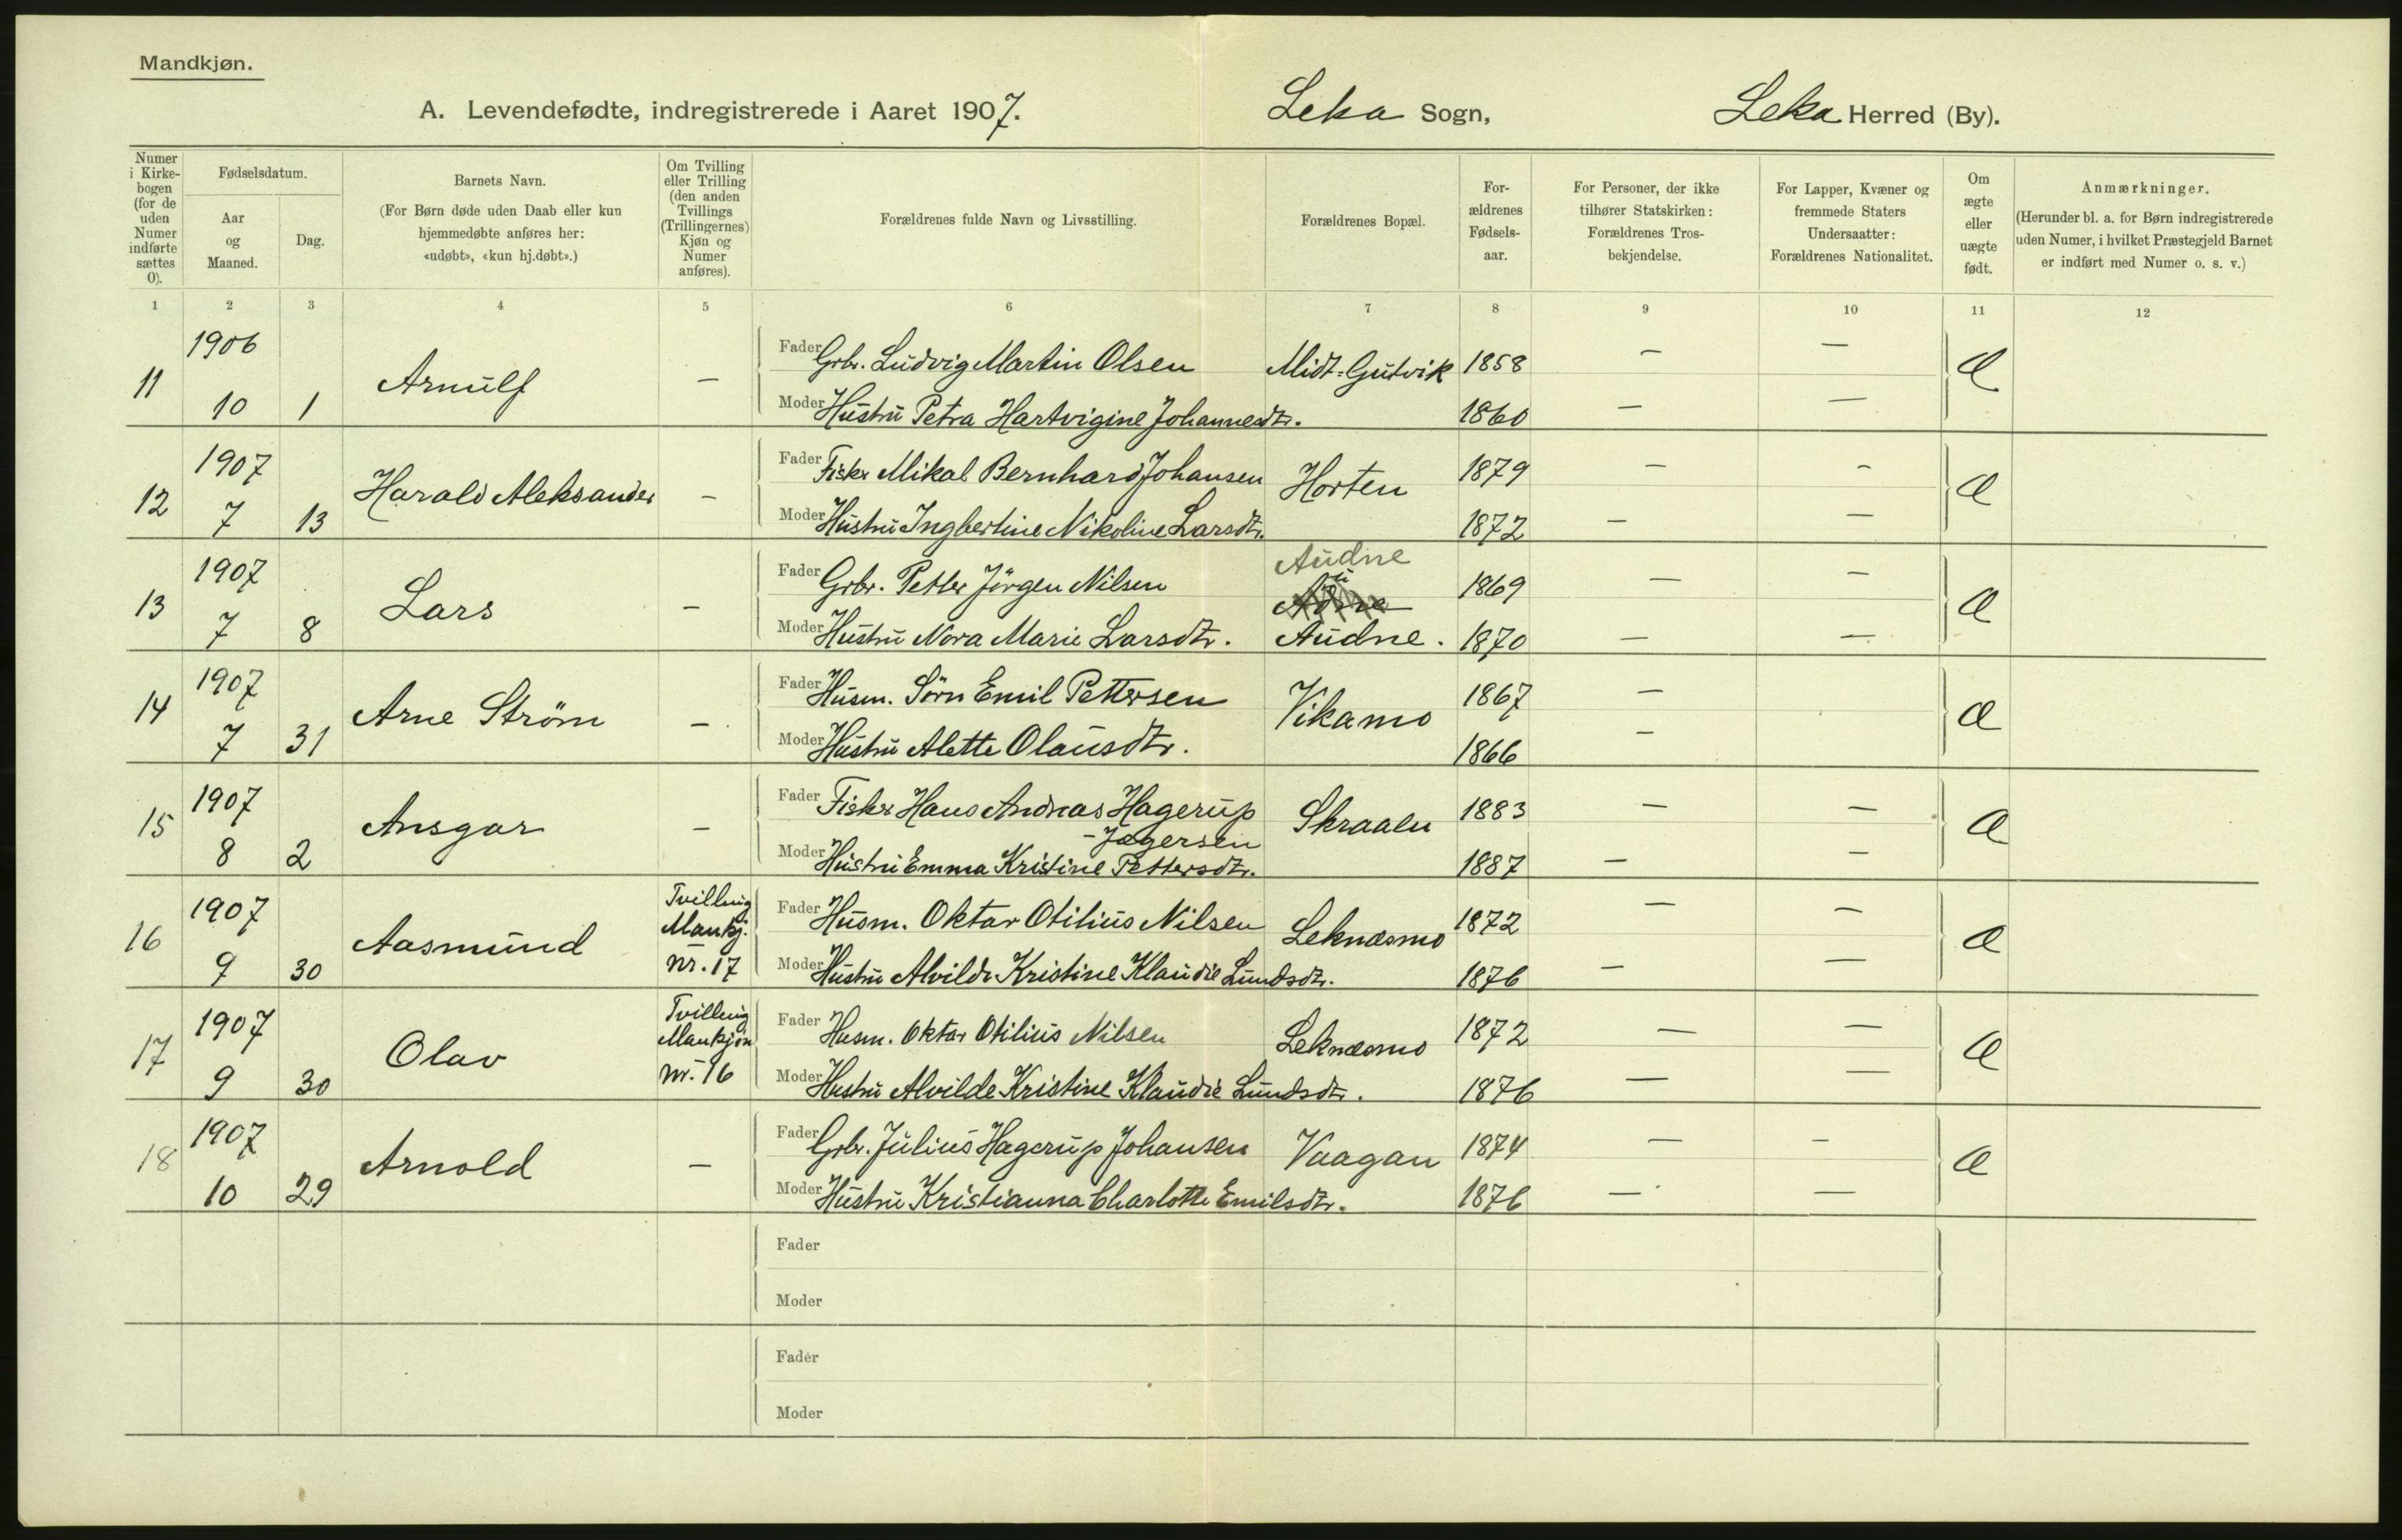 Mandkjøn.
A. Levendefødte, indregistrerede i Aaret 1907.
Leka Sogn,
Leka Herred (By).
Numer
i Kirke-
bogen
(for de
uden
Numer
indførte
sættes
0).
Fødselsdatum.
Aar
og
Maaned.
Dag.
Barnets Navn.
(For Børn døde uden Daab eller kun
hjemmedøbte anføres her:
«udøbt», «kun hj.døbt».)
Om Tvilling
eller Trilling
(den anden
Tvillings
(Trillingernes)
Kjøn og
Numer
anføres).
Forældrenes fulde Navn og Livsstilling.
Forældrenes Bopæl.
For-
ældrenes
Fødsels-
aar.
For Personer, der ikke
tilhører Statskirken:
Forældrenes Tros-
bekjendelse.
For Lapper, Kvæner og
fremmede Staters
Undersaatter:
Forældrenes Nationalitet.
Om
ægte
eller
uægte
født.
Anmærkninger.
(Herunder bl. a. for Børn indregistrerede
uden Numer, i hvilket Præstegjeld Barnet
er indført med Numer o. s. v.)
1 2 3 4 5 6 7 8 9 10 11 12
11 1906 10 1 Arnulf –
Fader Grbr. Ludvig Martin Olsen Midt-Gutvik 1858 – – Æ
Moder Hustru Petra Hartvigine Johannesdtr. 1860 – –
12 1907 7 13 Harald Aleksander –
Fader Fisker Mikal Bernhard Johansen Horten 1879 – – Æ
Moder Hustru Ingbertine Nikoline Larsdtr. 1872 – –
13 1907 7 8 Lars –
Audne
Fader Grbr. Petter Jörgen Nilsen 1869 – – Æ
Moder Hustru Nora Marie Larsdtr. Audne. 1870 – –
14 1907 7 31 Arne Ström –
Fader Husm. Sörn Emil Pettersen Vikamo 1867 – Æ
Moder Hustru Alette Olausdtr. 1866 –
15 1907 8 2 Ansgar –
Fader Fisker Hans Andreas Hagerup Skraalu 1883 – – Æ
- Jægersen
Moder Hustru Emma Kristine Pettersdtr. 1887 – –
16 1907 9 30 Aasmund
Tvilling
Mankj.
nr. 17
Fader Husm. Oktav Otilius Nilsen Leknæsmo 1872 – – Æ
Moder Hustru Alvilde Kristine Klaudie Lundsdtr. 1876 – –
17 1907 9 30 Olav
Tvilling
Mankjön
nr. 16
Fader Husm. Oktav Otilius Nilsen Leknæsmo 1872 – – Æ
Moder Hustru Alvilde Kristine Klaudie Lundsdtr. 1876 – –
18 1907 10 29 Arnold –
Fader Grbr. Julius Hagerup Johansen Vaagan 1874 – – Æ
Moder Hustru Kristianna Charlotte Emilsdtr. 1876 – –
Fader
Moder
Fader
Moder